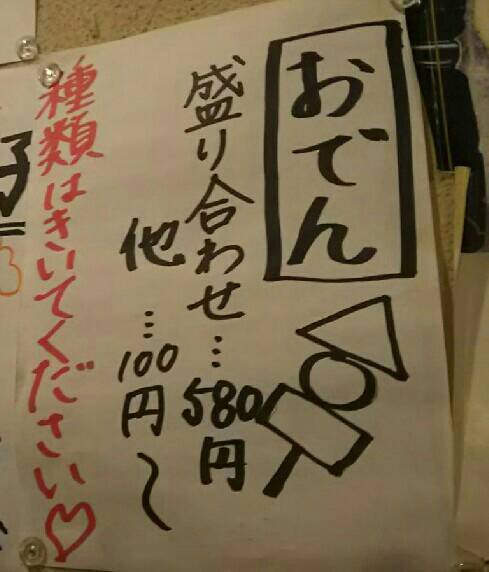 おでん
盛り合わせ…580円
他…100円〜
種類はきいてください♡